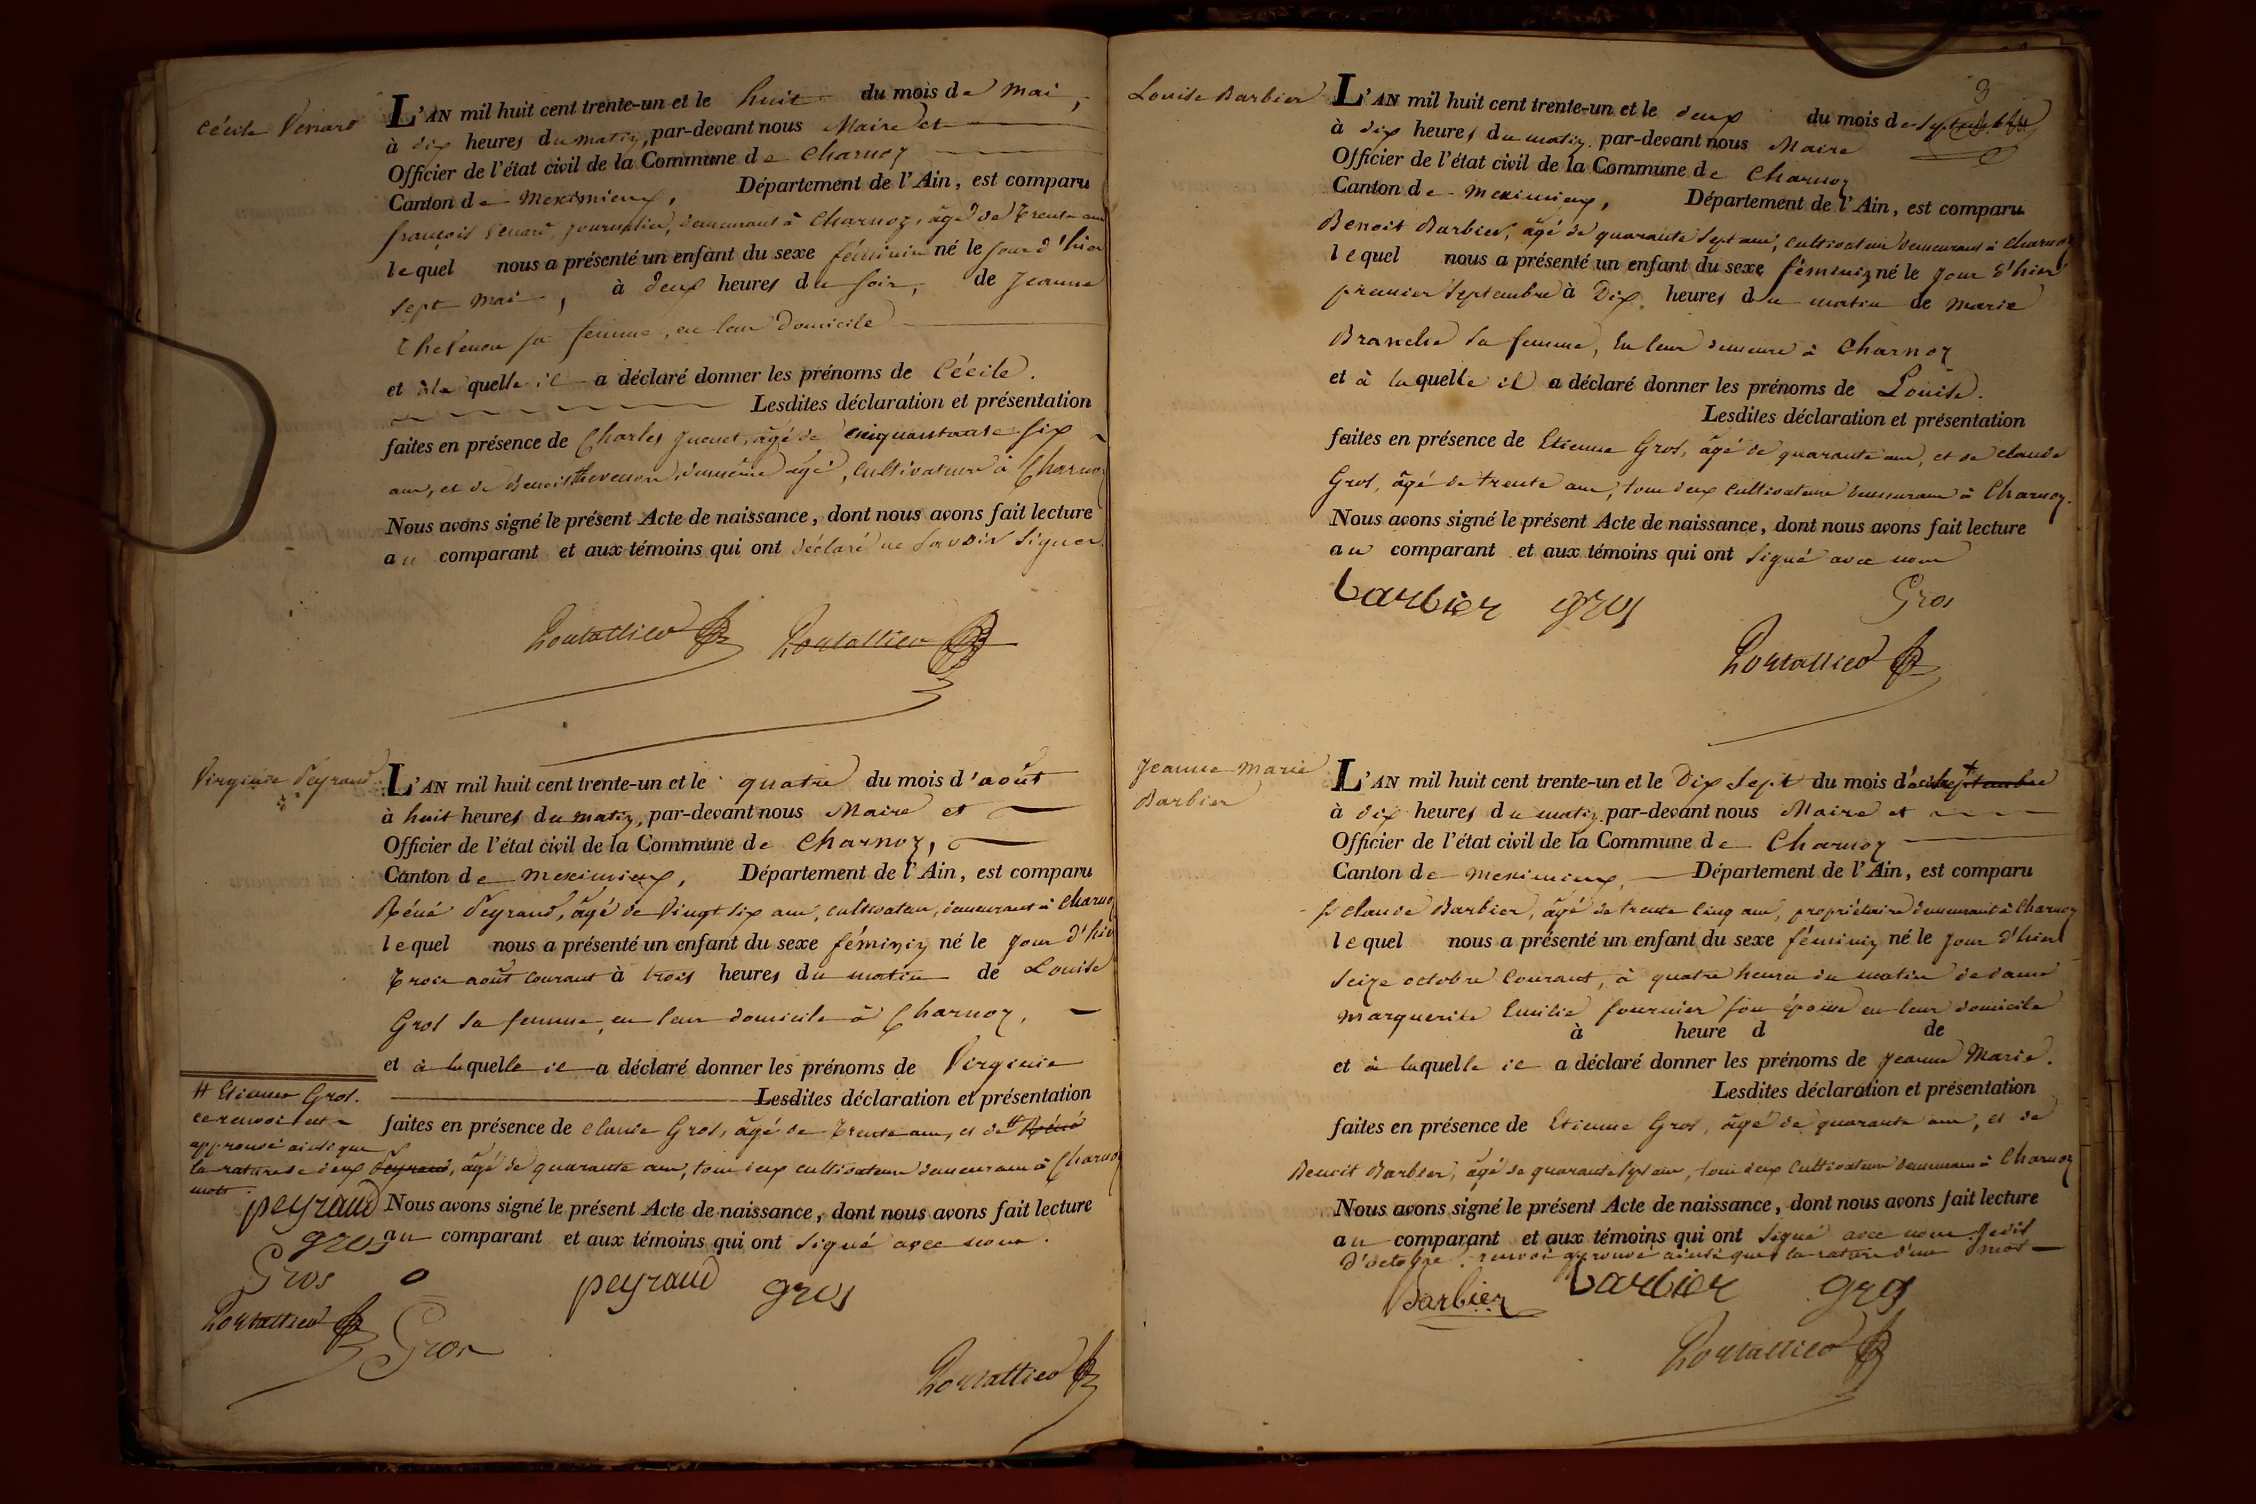 Cécile Venard
L'AN mil huit cent trente-un et le huit du mois de Mai,
à dix heures du matin, par-devant nous Maire et
Officier de l'état civil de la Commune de Charnoz
Canton de Meximieux, Département de l'Ain, est comparu
françois Venard, journalier, demeurant à Charnoz, âgé de trente ans
lequel nous a présenté un enfant du sexe féminin né le jour d'hier
sept Mai, à deux heures du soir, de Jeanne
Thevenon sa femme, en leur domicile
et à laquelle il a déclaré donner les prénoms de Cécile.
Lesdites déclaration et présentation
faites en présence de Charles Juenet, âgé de cinquante six
ans, et de Benoit thevenon du même âgé, Cultivateurs à Charnoz
Nous avons signé le présent Acte de naissance, dont nous avons fait lecture
au comparant et aux témoins qui ont déclaré ne savoir signer.
Portallier Portallier
Virginie Peyraud
L'AN mil huit cent trente-un et le quatre du mois d'août
à huit heures du matin, par-devant nous Maire et
Officier de l'état civil de la Commune de Charnoz,
Canton de Meximieux, Département de l'Ain, est comparu
Réné Peyraud, âgé de vingt six ans, cultivateur, demeurant à Charnoz
lequel nous a présenté un enfant du sexe féminin né le jour d'hier
trois août courant à trois heures du matin de Louise
Gros sa femme, en leur domicile à Charnoz,
et à laquelle il a déclaré donner les prénoms de Virginie
Lesdites déclaration et présentation
faites en présence de Claude Gros, âgé de trente ans, et de # Réné
Peyraud, âgé de quarante ans, tous deux cultivateurs demeurans à Charnoz
# Etienne Gros.
ce renvoi est
approuvé ainsi que
la rature de deux
mots.
Nous avons signé le présent Acte de naissance, dont nous avons fait lecture
au comparant et aux témoins qui ont signé avec nous.
peyraud
gros
Gros
peyraud gros
Portallier Gros
Portallier
3
Louise Barbier
L'AN mil huit cent trente-un et le deux du mois de septembre
à dix heures du matin, par-devant nous Maire
Officier de l'état civil de la Commune de Charnoz
Canton de Meximieux, Département de l'Ain, est comparu
Benoit Barbier, âgé de quarante sept ans, cultivateur demeurant à Charnoz
lequel nous a présenté un enfant du sexe féminin né le jour d'hier
premier septembre à Dix heures du matin de Marie
Branche sa femme, en leur demeure à Charnoz
et à laquelle il a déclaré donner les prénoms de Louise.
Lesdites déclaration et présentation
faites en présence de Etienne Gros, âgé de quarante ans, et de Claude
Gros, âgé de trente ans, tous deux cultivateurs demeurans à Charnoz.
Nous avons signé le présent Acte de naissance, dont nous avons fait lecture
au comparant et aux témoins qui ont signé avec nous
barbier gros Gros
Portallier
Jeanne Marie
Barbier
L'AN mil huit cent trente-un et le Dix sept du mois d' septembre
à dix heures du matin, par-devant nous Maire et
Officier de l'état civil de la Commune de Charnoz
Canton de Meximieux, Département de l'Ain, est comparu
Sr Claude Barbier, âgé de trente cinq ans, propriétaire demeurant à Charnoz
lequel nous a présenté un enfant du sexe féminin né le jour d'hier
seize octobre courant, à quatre heures du matin de dame
Marguerite Emilie fournier son épouse en leur domicile
à heure d de
et à laquelle il a déclaré donner les prénoms de Jeanne Marie.
Lesdites déclaration et présentation
faites en présence de Etienne Gros, âgé de quarante ans, et de
Benoit Barbier, âgé de quarante sept ans, tous deux cultivateurs demeurans à Charnoz
Nous avons signé le présent Acte de naissance, dont nous avons fait lecture
au comparant et aux témoins qui ont signé avec nous
d'octobre. renvoi approuvé ainsi que la rature d'un mot
Barbier barbier gros
Portallier